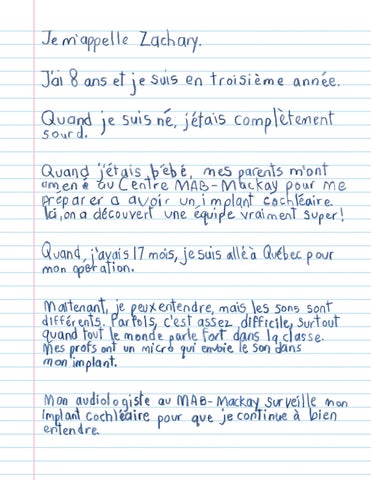 Je m'appelle Zachary.
J'ai 8 ans et je suis en troisième année.
Quand je suis né, j'étais complètement
sourd.
Quand j'étais bébé, mes parents m'ont
amené au Centre MAB-Mackay pour me
préparer a avoir un implant cochléaire.
Ici, on a découvert une équipe vraiment super!
Quand, j'avais 17 mois, je suis allé à Québec pour
mon opération.
Maitenant, je peux entendre, mais les sons sont
différents. Parfois, c'est assez difficile, surtout
quand tout le monde parle fort dans la classe.
Mes profs ont un micro qui envoie le son dans
mon implant.
Mon audiologiste au MAB-Mackay surveille mon
implant cochléaire pour que je continue à bien
entendre.